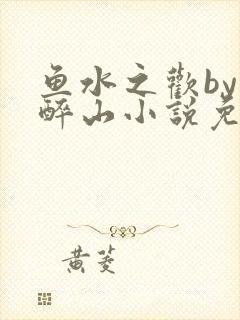 鱼水之歡by
醉山小說免
黄菱